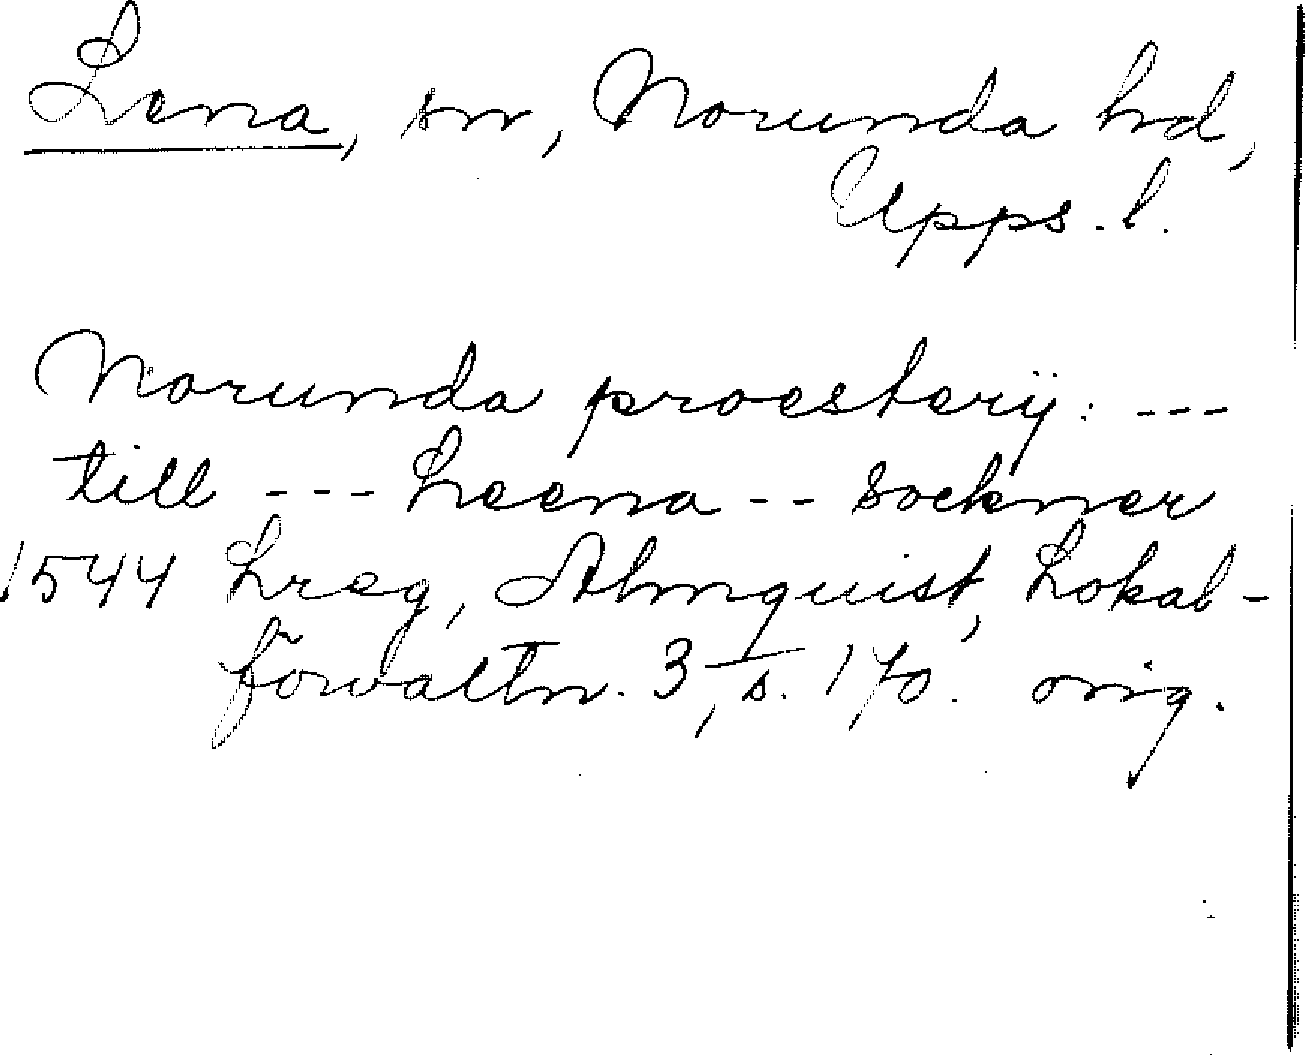 Lena, sn, Norunda hd,
Upps. l.
Norunda proesterij: ---
till --- Leena -- socknar
1544 Lreg, Almquist, Lokal-
förvaltn. 3, s. 170. orig.